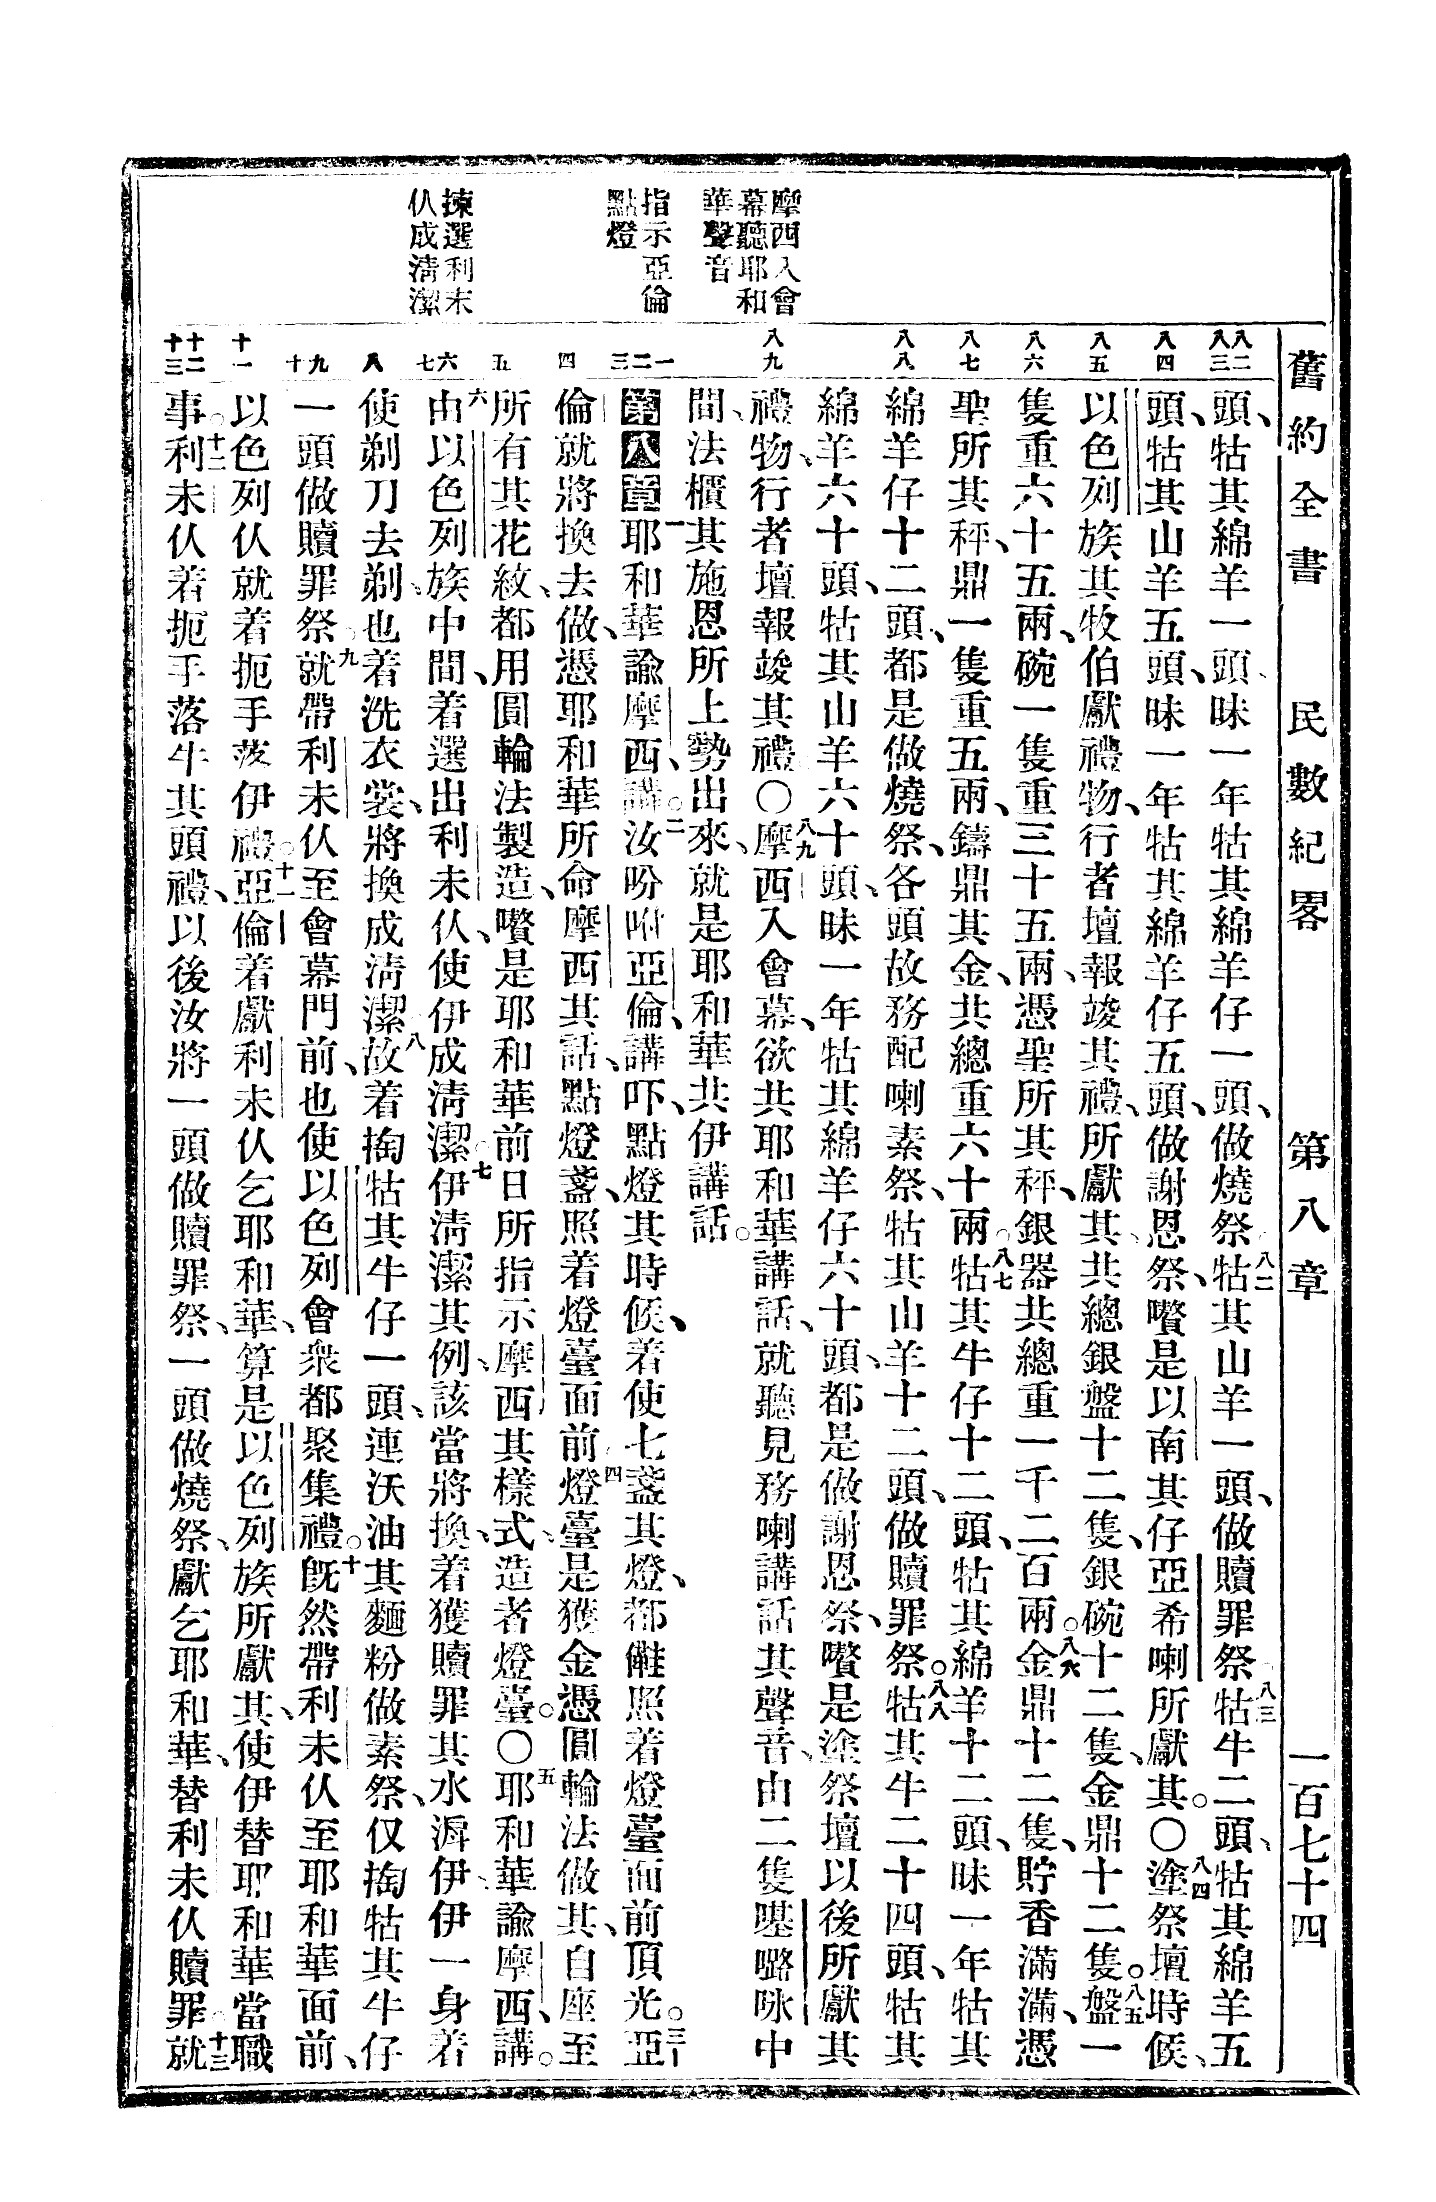 舊約全書　民數紀畧　第八章　一百七十四
摩西入會
幕聽耶和
華聲音
指示亞倫
點燈
揀選利未
仈成清潔
八二 八三 八四 八五 八六 八七 八八 八九 一 二 三 四 五 六 七 八 九 十 十一 十二 十三
頭、牯其綿羊一頭、昧一年牯其綿羊仔一頭、做燒祭。八二牯其山羊一頭、做贖罪祭。八三牯牛二頭、牯其綿羊五
頭、牯其山羊五頭、昧一年牯其綿羊仔五頭、做謝恩祭、嚽是以南其仔亞希喇所獻其。○八四塗祭壇時候、
以色列族其牧伯獻禮物、行者壇報竣其禮、所獻其、共總銀盤十二隻、銀碗十二隻、金鼎十二隻。八五盤一
隻重六十五兩、碗一隻重三十五兩、憑聖所其秤、銀器共總重一千二百兩。八六金鼎十二隻、貯香滿滿、憑
聖所其秤、鼎一隻重五兩、鑄鼎其金、共總重六十兩。八七牯其牛仔十二頭、牯其綿羊十二頭、昧一年牯其
綿羊仔十二頭、都是做燒祭、各頭故務配喇素祭、牯其山羊十二頭、做贖罪祭。八八牯其牛二十四頭、牯其
綿羊六十頭、牯其山羊六十頭、昧一年牯其綿羊仔六十頭、都是做謝恩祭、嚽是塗祭壇以後所獻其
禮物、行者壇報竣其禮。○八九摩西入會幕、欲共耶和華講話、就聽見務喇講話其聲音、由二隻𠯿嚕咏中
間、法櫃其施恩所上勢出來、就是耶和華共伊講話。
第八章一耶和華諭摩西、講。二汝吩咐亞倫、講吓、點燈其時候、着使七盞其燈、都儺照着燈臺面前頂光。三亞
倫就將換去做、憑耶和華所命摩西其話、點燈盞、照着燈臺面前。四燈臺是獲金憑圓輪法做其、自座至
所有其花紋、都用圓輪法製造、嚽是耶和華前日所指示摩西其樣式、造者燈臺。○五耶和華諭摩西、講。
六由以色列族中間、着選出利未仈、使伊成清潔。七伊清潔其例、該當將換、着獲贖罪其水潷伊、伊一身着
使剃刀去剃、也着洗衣裳、將換成清潔。八故着掏牯其牛仔一頭、連沃油其麵粉做素祭、仅掏牯其牛仔
一頭做贖罪祭。九就帶利未仈至會幕門前、也使以色列會衆都聚集禮。十旣然帶利未仈至耶和華面前、
以色列仈就着扼手落伊禮。十一亞倫着獻利未仈乞耶和華、算是以色列族所獻其、使伊替耶和華當職
事。十二利未仈着扼手落牛其頭禮、以後汝將一頭做贖罪祭、一頭做燒祭、獻乞耶和華、替利未仈贖罪。十三就